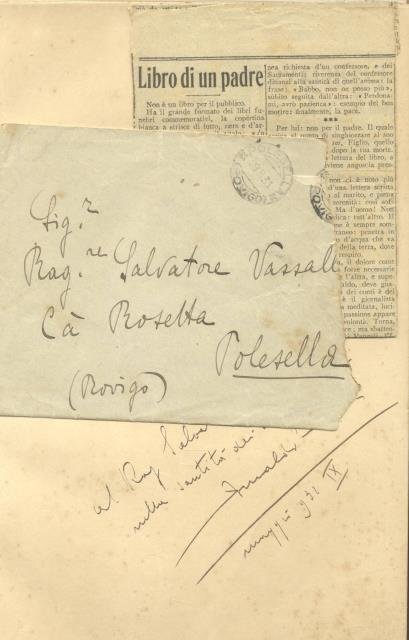 Libro di un padre
Non è un libro per il pubblico.
Ha il grande formato dei libri fu-
nebri commemorativi, la copertina
bianca a strisce di lutto, nera e d'ar-
nea richiesta d'un confessore, e dei
Sacramenti; riverenza del confessore
dinanzi alla santità di quell'anima: la
frase: «Babbo, non ne posso più»,
subito seguita dall'altra: «Perdona-
mi, avrò pazienza»: esempio del ben
morire: finalmente, la pace.
***
Per lui: non per il padre. Il quale
di singhiozzare al suo
Figlio, quello
dopo la sua morte.
lettura del libro, a
viene angoscia pres-
non ci è noto più
d'una lettera scritta
al marito, e piena
serenità: così sof-
Ma d'uomo! Non
dica: tutt'altro. Il
me è sempre som-
penetra in
d'acqua che va
della terra, dove
respiro.
il dolore came
forze necessarie
l'altra, e supe-
aldo, deve gua-
dei conti è del
è il giornalista
meditata, luci-
passione appare
volontà. Torna,
ma sbatten-
Sig.r
Rag.re Salvatore Vassall
Cà Rosetta
Polesella
(Rovigo)
al Rag Salva
nella santità dei
Arnaldo
maggio 931 IX